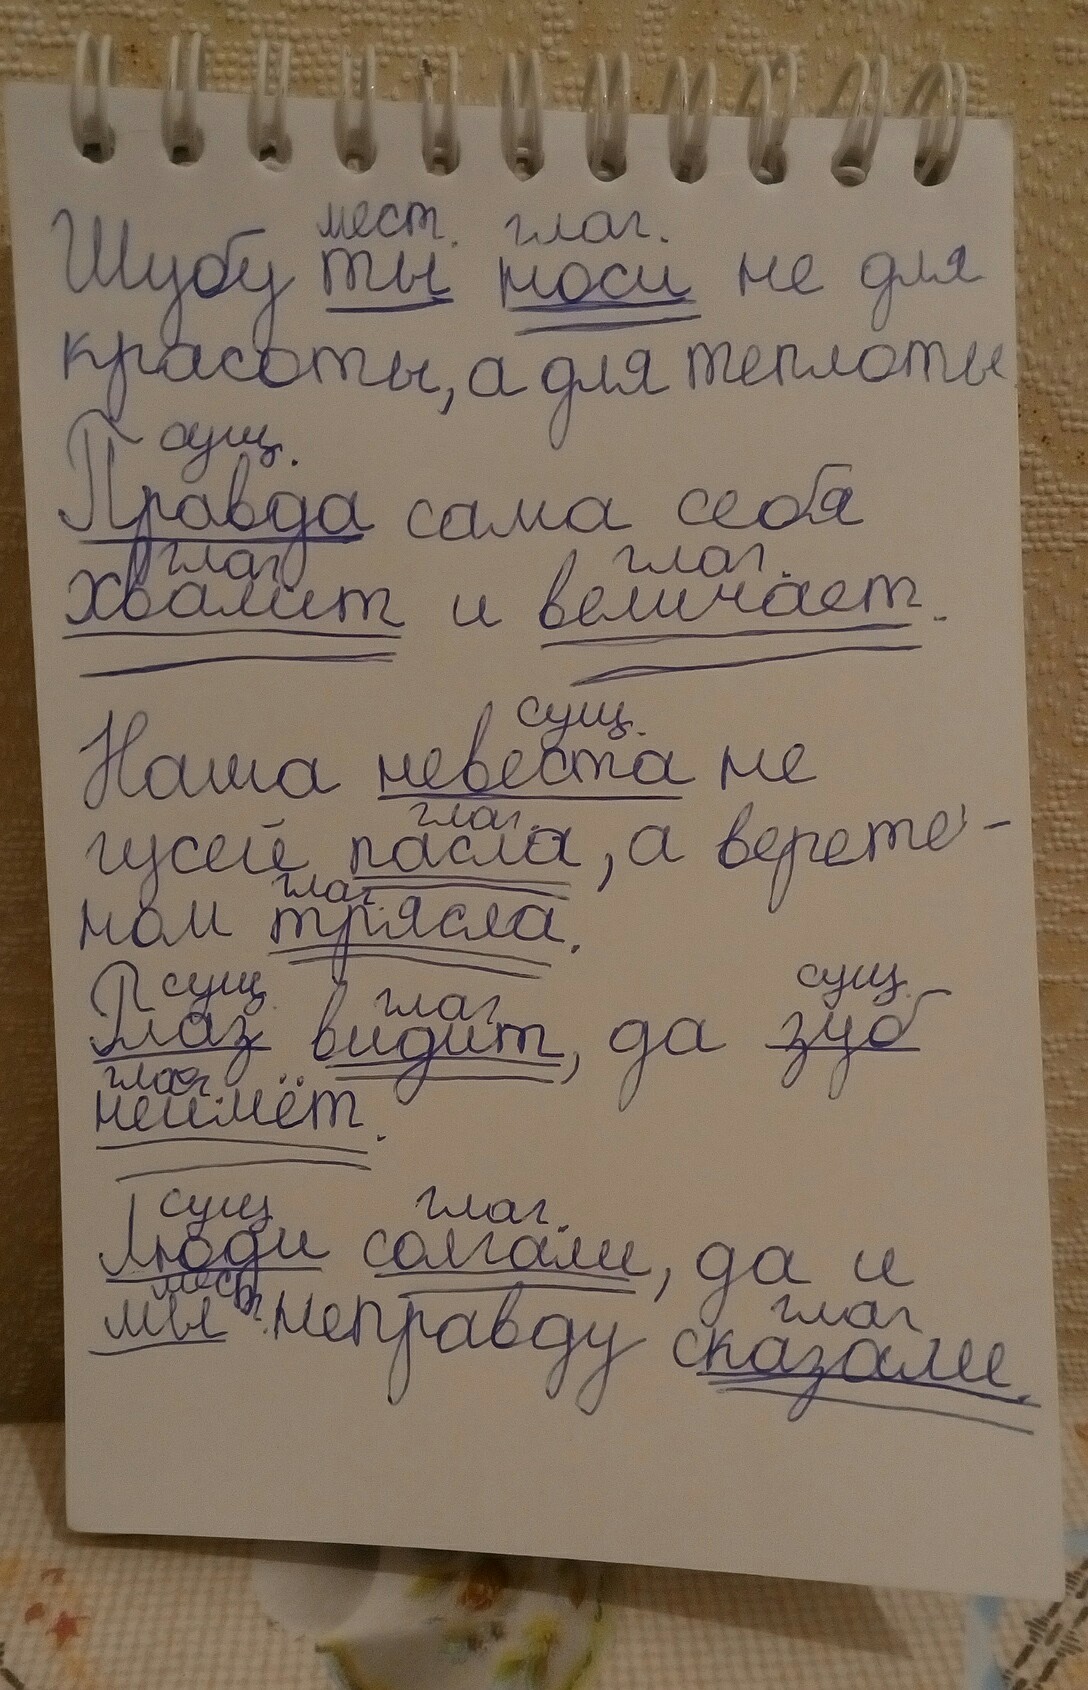 мест. глаг.
Шубу ты носи не для
красоты, а для теплоты.
сущ.
Правда сама себя
глаг глаг.
хвалит и величает.
сущ.
Наша невеста не
глаг.
гусей пасла, а верете-
глаг
ном трясла.
сущ глаг сущ
Глаз видит, да зуб
глаг
неймёт.
сущ глаг.
Люди солгали, да и
мест. глаг
мы неправду сказали.